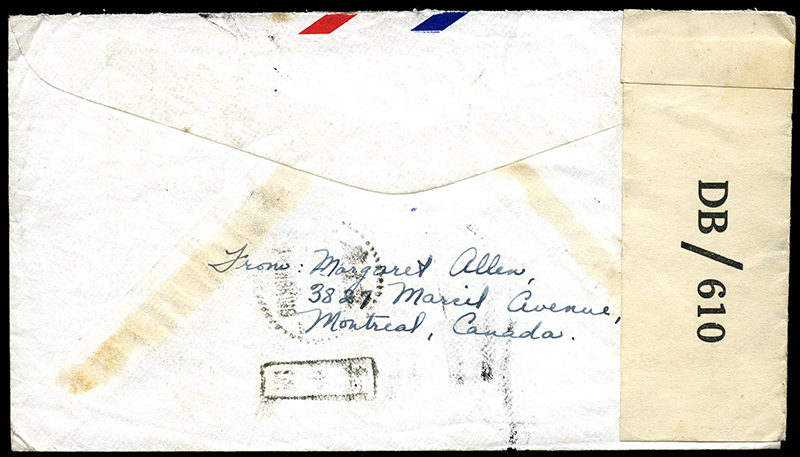 From: Margaret Allen,
3827 Marcil Avenue,
Montreal, Canada.
DB/610